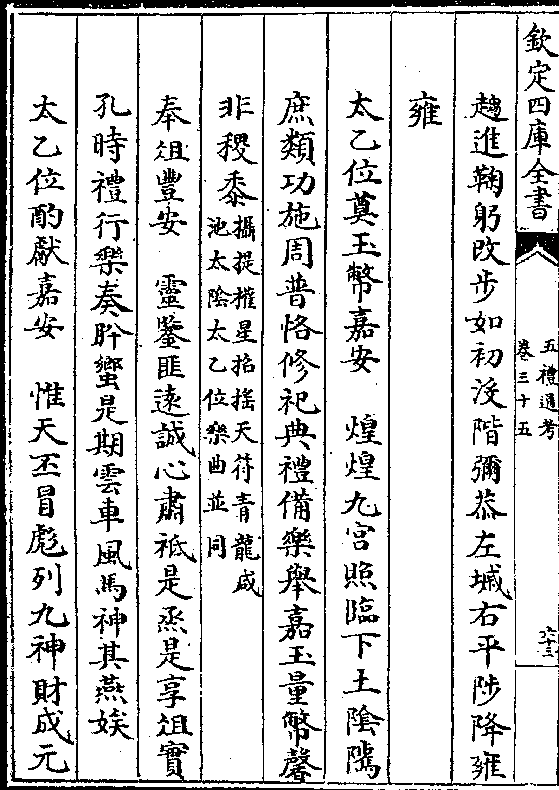 欽定四庫全書
五禮通考
卷三十五
六十三
趨進鞠躬改步如初沒階彌恭左墄右平陟降雍
雍
太乙位奠玉幣嘉安　煌煌九宮照臨下土陰隲
庶類功施周普恪修祀典禮備樂舉嘉玉量幣馨
非稷黍攝提權星招搖天符青龍咸
池太陰太乙位樂曲並同
奉俎豐安　靈鑒匪遠誠心肅祗是烝是享俎實
孔時禮行樂奏肸蠁是期雲車風馬神其燕娭
太乙位酌獻嘉安　惟天丕冒彪列九神財成元